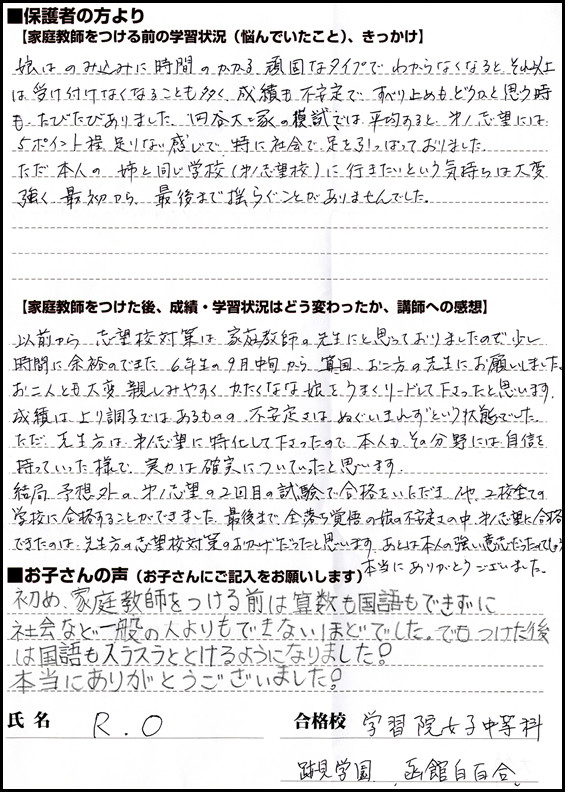 ■保護者の方より
【家庭教師をつける前の学習状況（悩んでいたこと）、きっかけ】
娘はのみ込みに時間のかかる頑固なタイプで わからなくなると、それ以上
は受け付けなくなることも多く、成績も不安定で、すべり止めもどうかと思う時
も、たびたびありました。四谷大塚の模試では、平均すると、第1志望には
5ポイント程 足りない感じで、特に社会で足を引っぱっておりました。
ただ本人の 姉と同じ学校(第1志望校)に行きたいという気持ちは大変
強く 最初から、最後まで揺らぐことがありませんでした。
【家庭教師をつけた後、成績・学習状況はどう変わったか、講師への感想】
以前から 志望校対策は、家庭教師の先生にと思っておりましたので、少し
時間に余裕のできた 6年生の9月中旬から 算国、お二方の先生にお願いしました。
お二人とも大変 親しみやすく かたくなな娘をうまくリードして下さったと思います。
成績は、上り調子ではあるものの、不安定さは ぬぐいきれず という状態でした。
ただ、先生方は、第1志望に特化して下さったので、本人も その分野には自信を
持っていった様で、実力は確実についていったと思います。
結局 予想外の 第1志望の2回目の試験で合格をいただき 他、2校全ての
学校に合格することができました。最後まで、全落ち覚悟の娘の不安定さの中、第1志望に合格
できたのは、先生方の志望校対策のおかげだったと思います。あとは本人の強い意志だったのでしょう
本当にありがとうございました。
■お子さんの声（お子さんにご記入をお願いします）
初め、家庭教師をつける前は算数も国語もできずに
社会など一般の人よりもできないほどでした。でもつけた後
は国語もスラスラととけるようになりました!
本当にありがとうございました!
氏名 R.O 合格校 学習院女子中等科
跡見学園、函館白百合